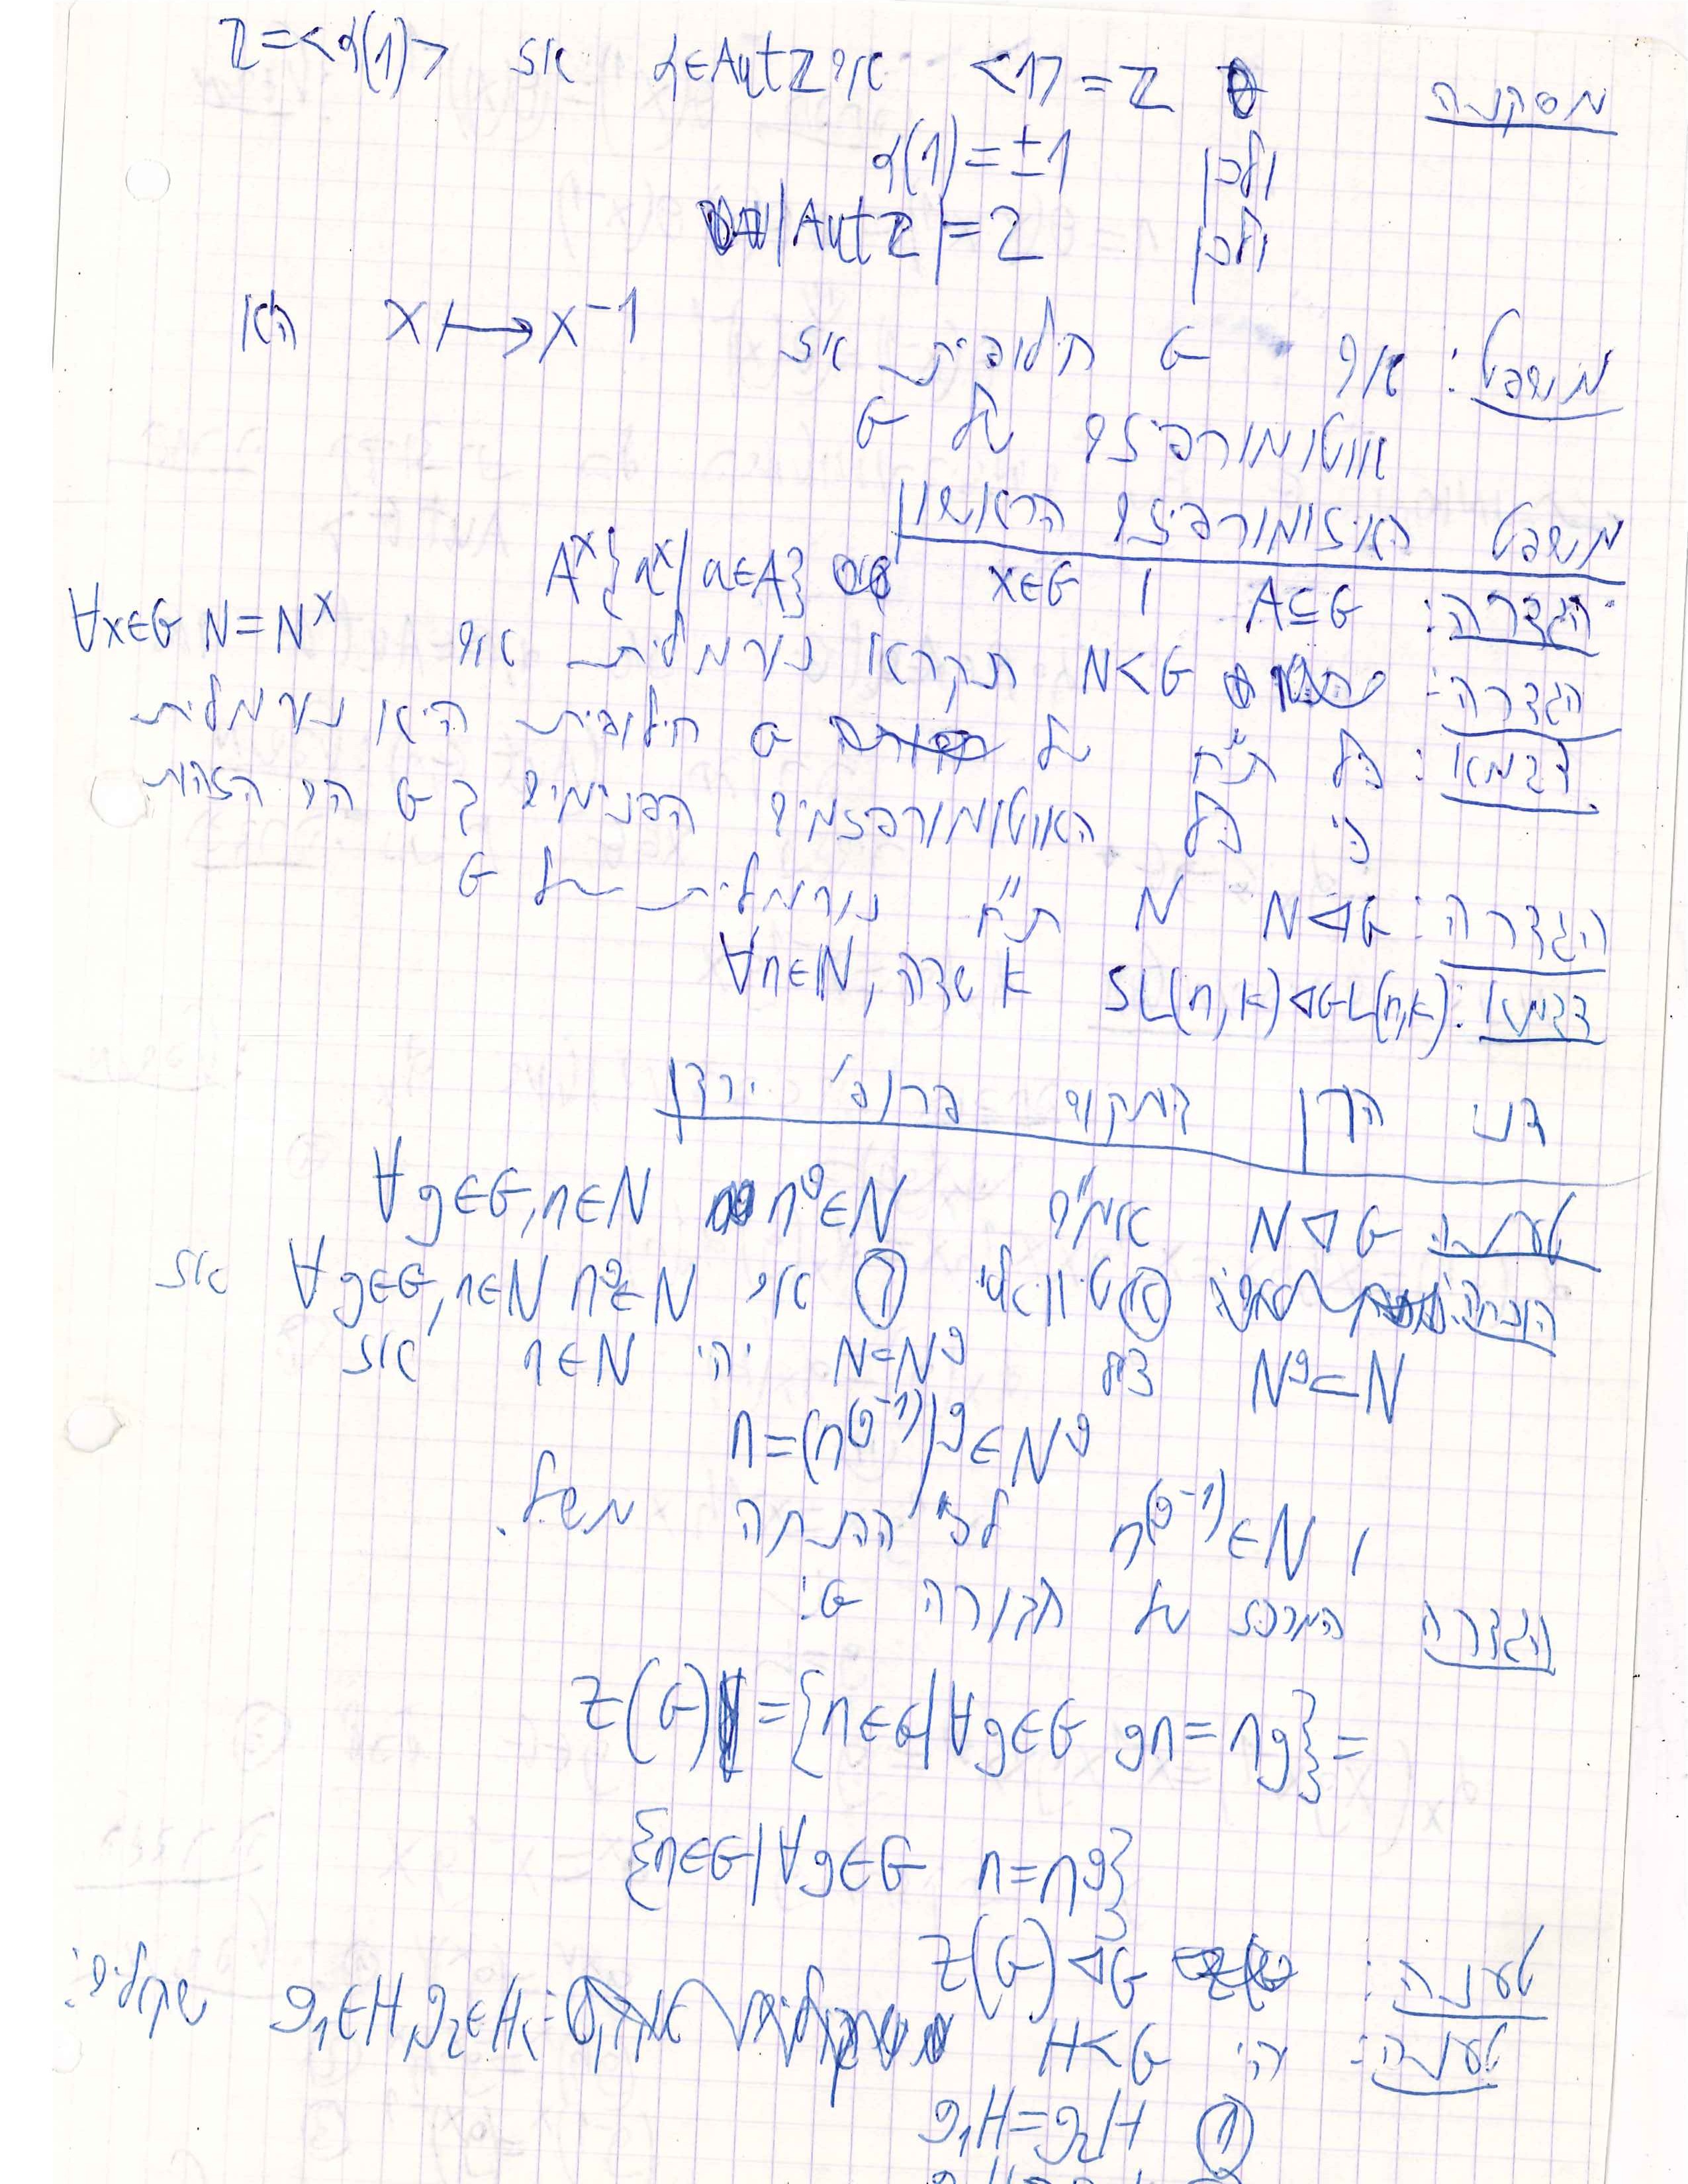 מסקנה <1>=ℤ אם α∈Autℤ אז ℤ=<α(1)>
ולכן α(1)=±1
ולכן |Autℤ|=2
משפט: אם G חילופית אז x↦x⁻¹ הוא
אוטומורפיזם של G
משפט האיזומורפיזם הראשון
הגדרה: A⊆G ו x∈G A^x{a^x|a∈A}
הגדרה: N<G תקרא נורמלית אם ∀x∈G N=N^x
דגמא: כל ת"ח של G חילופית היא נורמלית
כי כל האוטומורפזמים הפנימים ב G הם הזהות
הגדרה: N◁G N ת"ח נורמלית של G
דגמא: SL(n,k)◁GL(n,k) k שדה, ∀n∈ℕ
דני הרן במקום פרופ' ירדן
טענה N◁G אמ"ם n^g∈N ∀g∈G,n∈N
הוכחה: טריוויאלי ① אם ∀g∈G,n∈N n^g∈N אז
N^g⊂N צ"ל N⊂N^g יהי n∈N אז
n=(n^(g⁻¹))^g∈N^g
ו n^(g⁻¹)∈N לפי ההנחה משל.
הגדרה המרכז של חבורה G:
Z(G)={n∈G|∀g∈G gn=ng}=
{n∈G|∀g∈G n=n^g}
טענה: Z(G)◁G
טענה: יהי H<G שקולים:
g₁H=g₂H ①